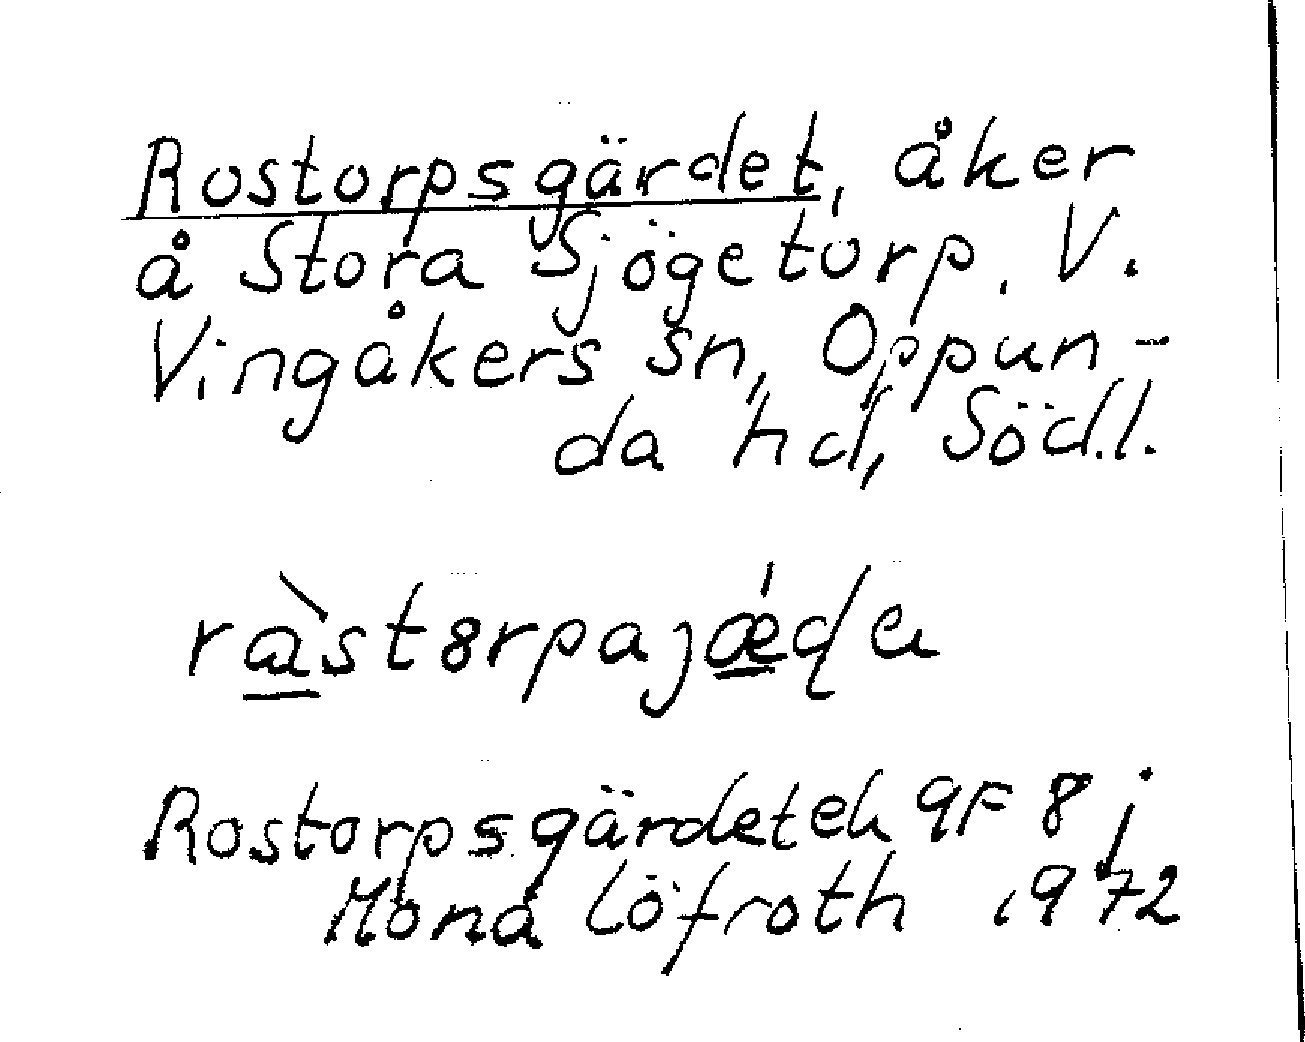 Rostorpsgärdet, åker
å Stora Sjögetorp, V.
Vingåkers sn, Oppun-
da hd, Södl.
Rostorpsgärdet ek 9F 8j
Mona Löfroth 1972